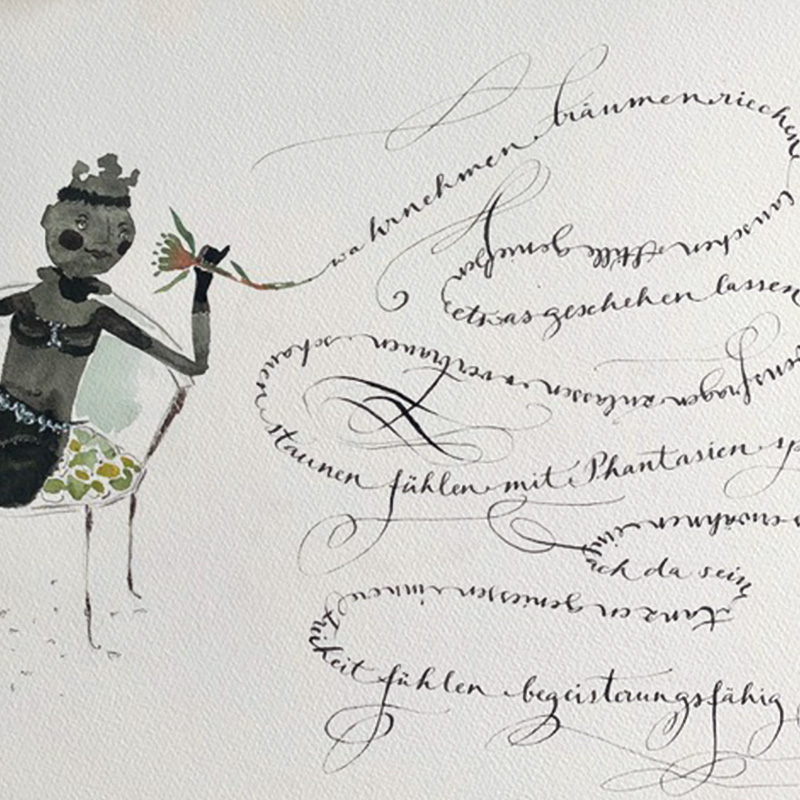 wahrnehmen träumen riechen
lauschen Stille genießen
etwas geschehen lassen
ensfragen zulassen vertrauen schauen
staunen fühlen mit Phantasien sp
einfach da sein
tanzen geniessen innere
freiheit fühlen begeisterungsfähig